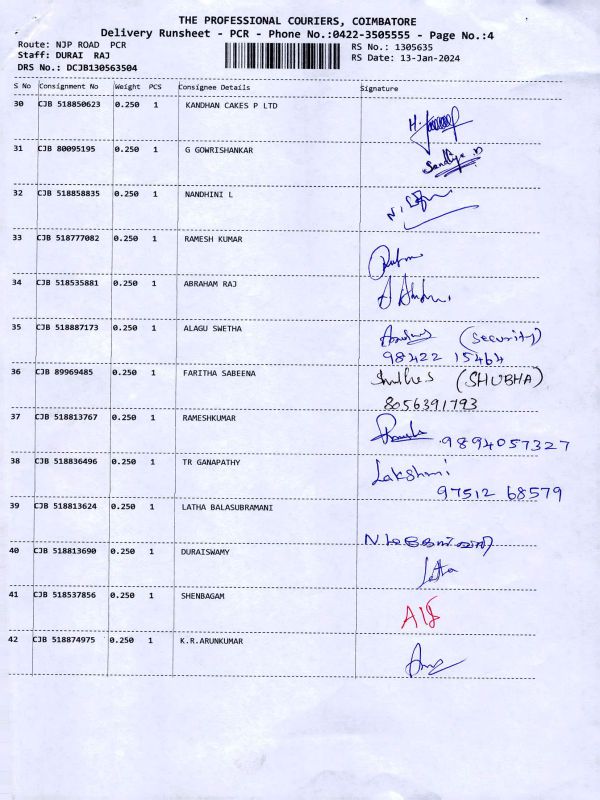 THE PROFESSIONAL COURIERS, COIMBATORE
Delivery Runsheet - PCR - Phone No.:0422-3505555 - Page No.:4
Route: NJP ROAD PCR
RS No.: 1305635
Staff: DURAI RAJ
RS Date: 13-Jan-2024
DRS No.: DCJB130563504
S No Consignment No Weight PCS Consignee Details Signature
30 CJB 518850623 0.250 1 KANDHAN CAKES P LTD
31 CJB 80095195 0.250 1 G GOWRISHANKAR Sandhya
32 CJB 518858835 0.250 1 NANDHINI L
33 CJB 518777082 0.250 1 RAMESH KUMAR
34 CJB 518535881 0.250 1 ABRAHAM RAJ
35 CJB 518887173 0.250 1 ALAGU SWETHA (Security)
98422 15464
36 CJB 89969485 0.250 1 FARITHA SABEENA (SHUBHA)
8056391793
37 CJB 518813767 0.250 1 RAMESHKUMAR 9894057327
38 CJB 518836496 0.250 1 TR GANAPATHY Lakshmi
97512 68579
39 CJB 518813624 0.250 1 LATHA BALASUBRAMANI
40 CJB 518813690 0.250 1 DURAISWAMY Latha
41 CJB 518537856 0.250 1 SHENBAGAM
42 CJB 518874975 0.250 1 K.R.ARUNKUMAR